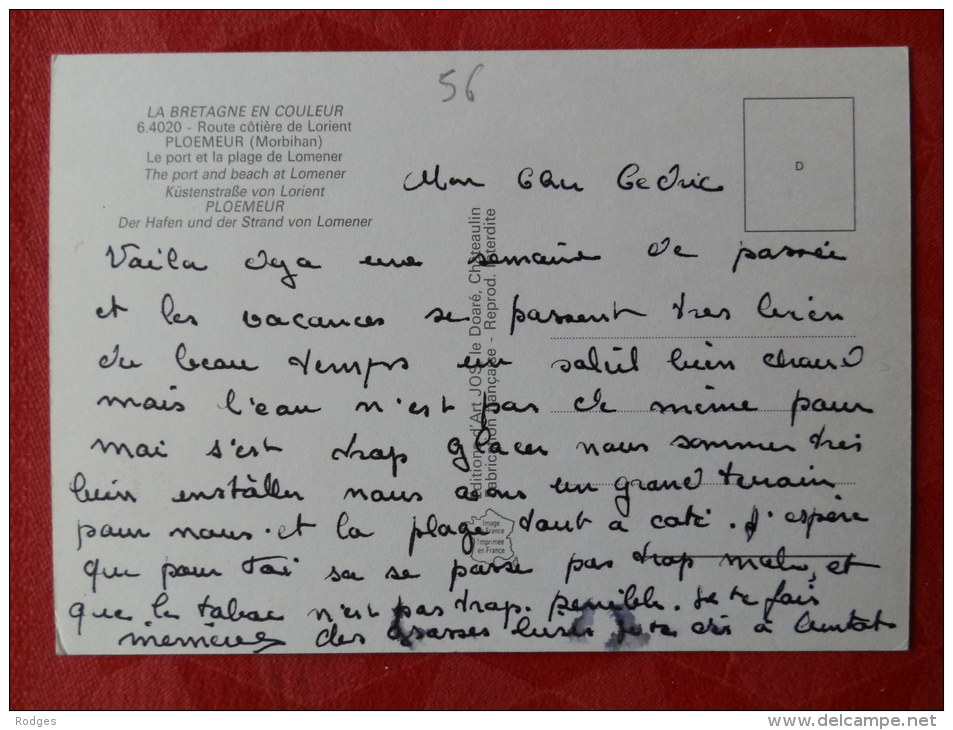 56
LA BRETAGNE EN COULEUR
6.4020 - Route côtière de Lorient
PLOEMEUR (Morbihan)
Le port et la plage de Lomener
The port and beach at Lomener
Küstenstraße von Lorient
PLOEMEUR
Der Hafen und der Strand von Lomener
D
Mon Cher Cedric
Voila deja une semaine de passée
et les vacances se passent tres bien
du beau temps un soleil bien chaud
mais l'eau n'est pas de même pour
moi s'est trop glacer nous sommes tres
bien installer nous avons un grand terrain
pour nous. et la plage tout a coté. J'espère
que pour toi sa se passe pas trop mal, et
que le tabac n'est pas trop. penible. Je te fais
des grosses bises je te dis à bientot
Editions d'Art JOS le Doaré, Châteaulin
Fabrication française - Reprod. Interdite
Image de France
Imprimée en France
Rodges
www.delcampe.net